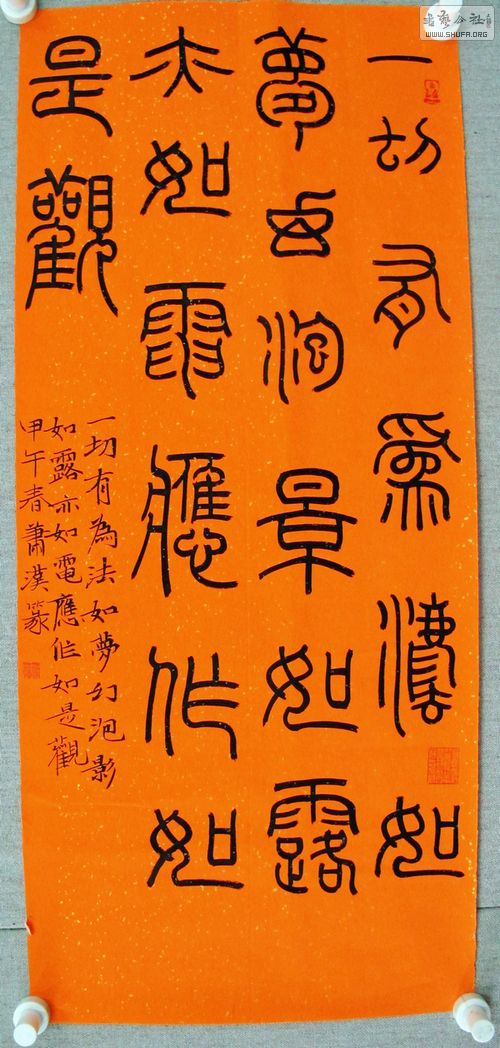 一切有為法如
夢幻泡景如露
亦如電應作如
是觀
一切有為法如夢幻泡影
如露亦如電應作如是觀
甲午春蕭漢篆
書藝公社
WWW.SHUFA.ORG